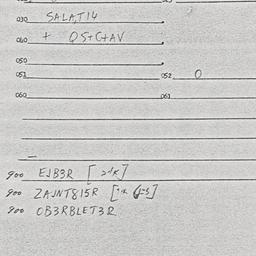 030 SALAT14
040 + OS+C+AV
050
051 052 0
060 061
900 EJB3R
900 ZAJNT815R
900 OB3RBLET3R